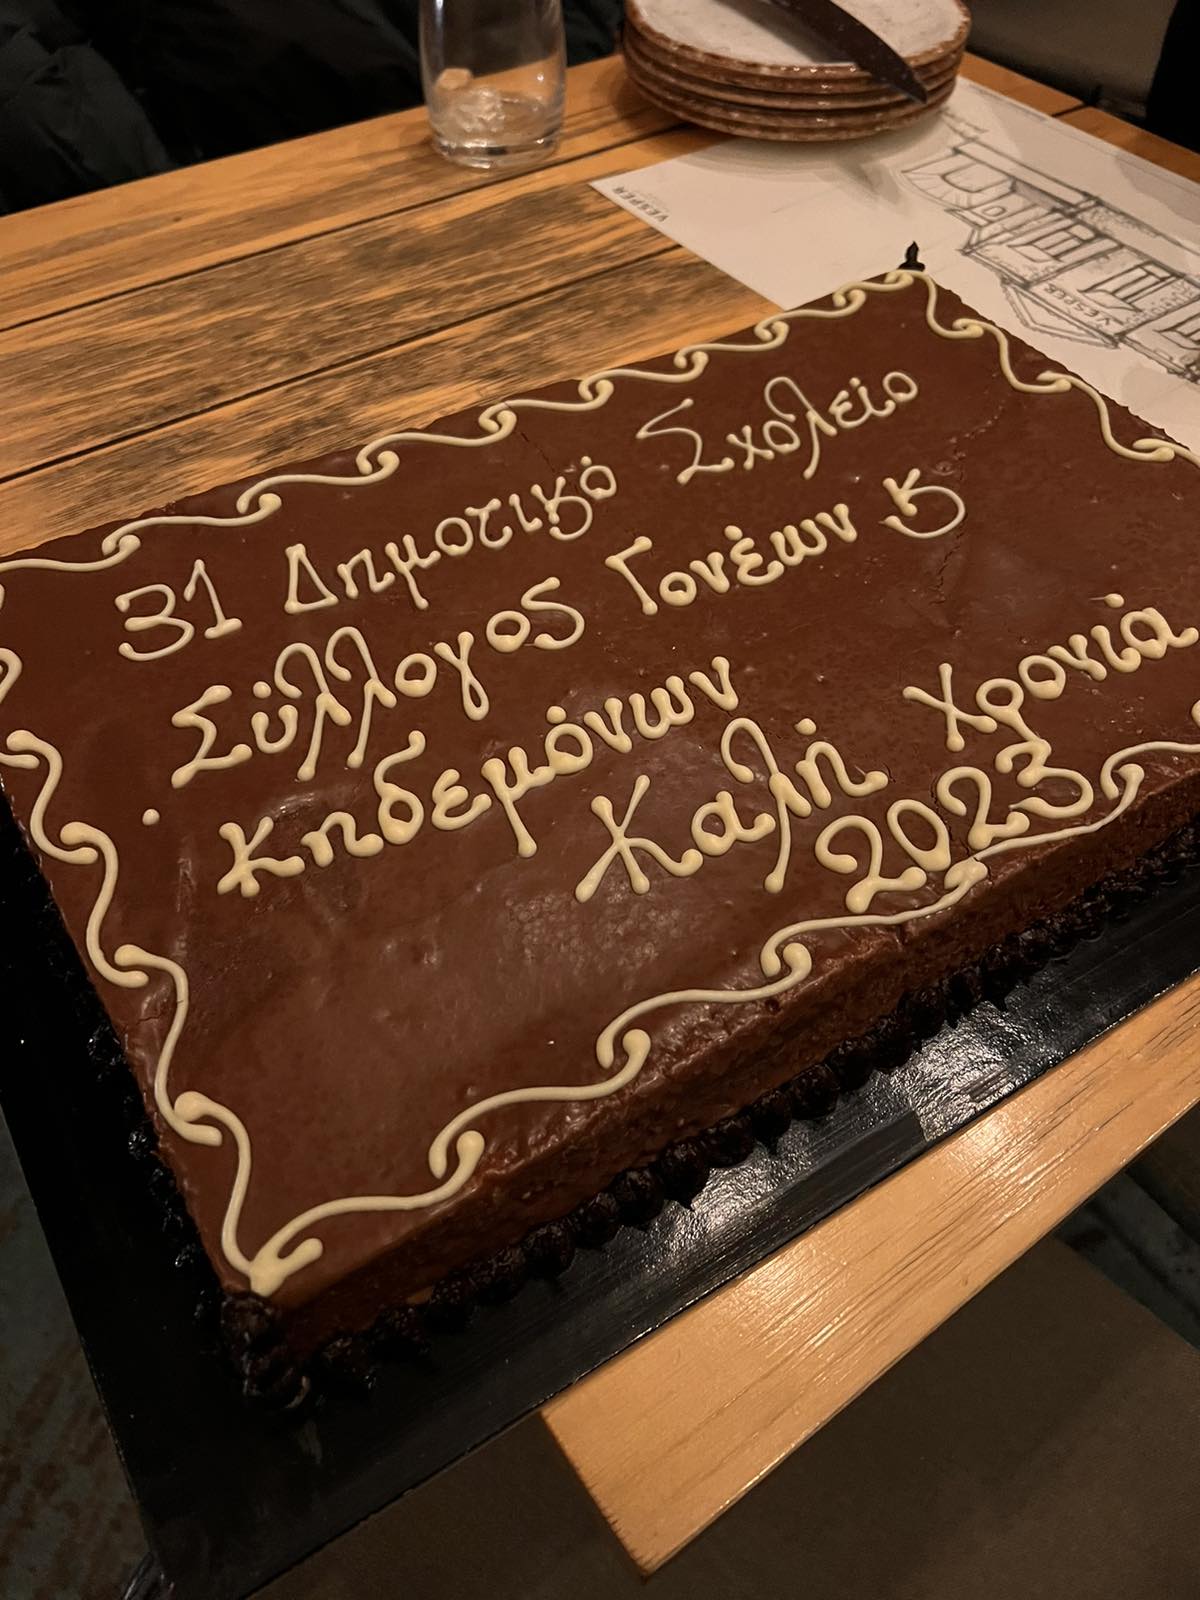 31 Δημοτικό Σχολείο
Σύλλογος Γονέων Κ
κηδεμόνων
Καλή Χρονιά
2023
VESPER
VESPER